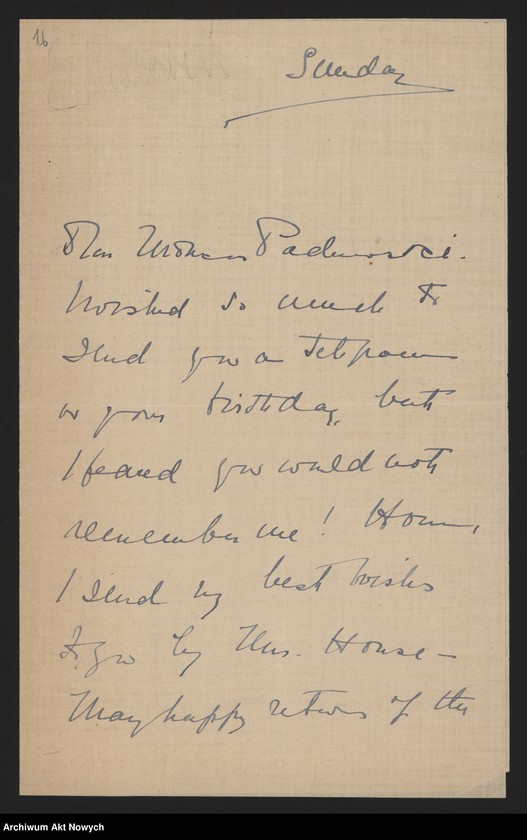 16
Sunday
Dear Madame Paderewski.
I wished so much to
send you a telegram
on your birthday, but
I feared you would not
remember me! However,
I send my best wishes
to you by Mrs. House –
Many happy returns of the
Archiwum Akt Nowych